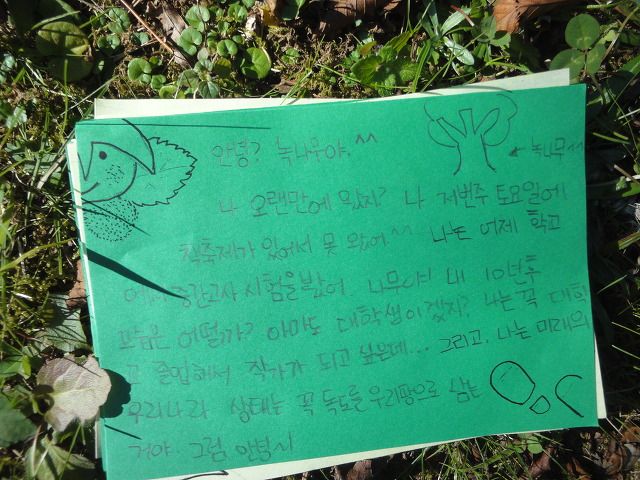 안녕? 녹나무야.^^
← 녹나무^^
나 오랜만에 왔지? 나 저번주 토요일에
책축제가 있어서 못 왔어.^^ 나는 어제 학교
에서 중간고사 시험을 봤어. 나무야! 내 10년후
모습은 어떨까? 아마도 대학생이겠지? 나는 꼭 대학
교 졸업해서 작가가 되고 싶은데... 그리고, 나는 미래의
우리나라 상태는 꼭 독도를 우리땅으로 삼는
거야. 그럼 안녕~